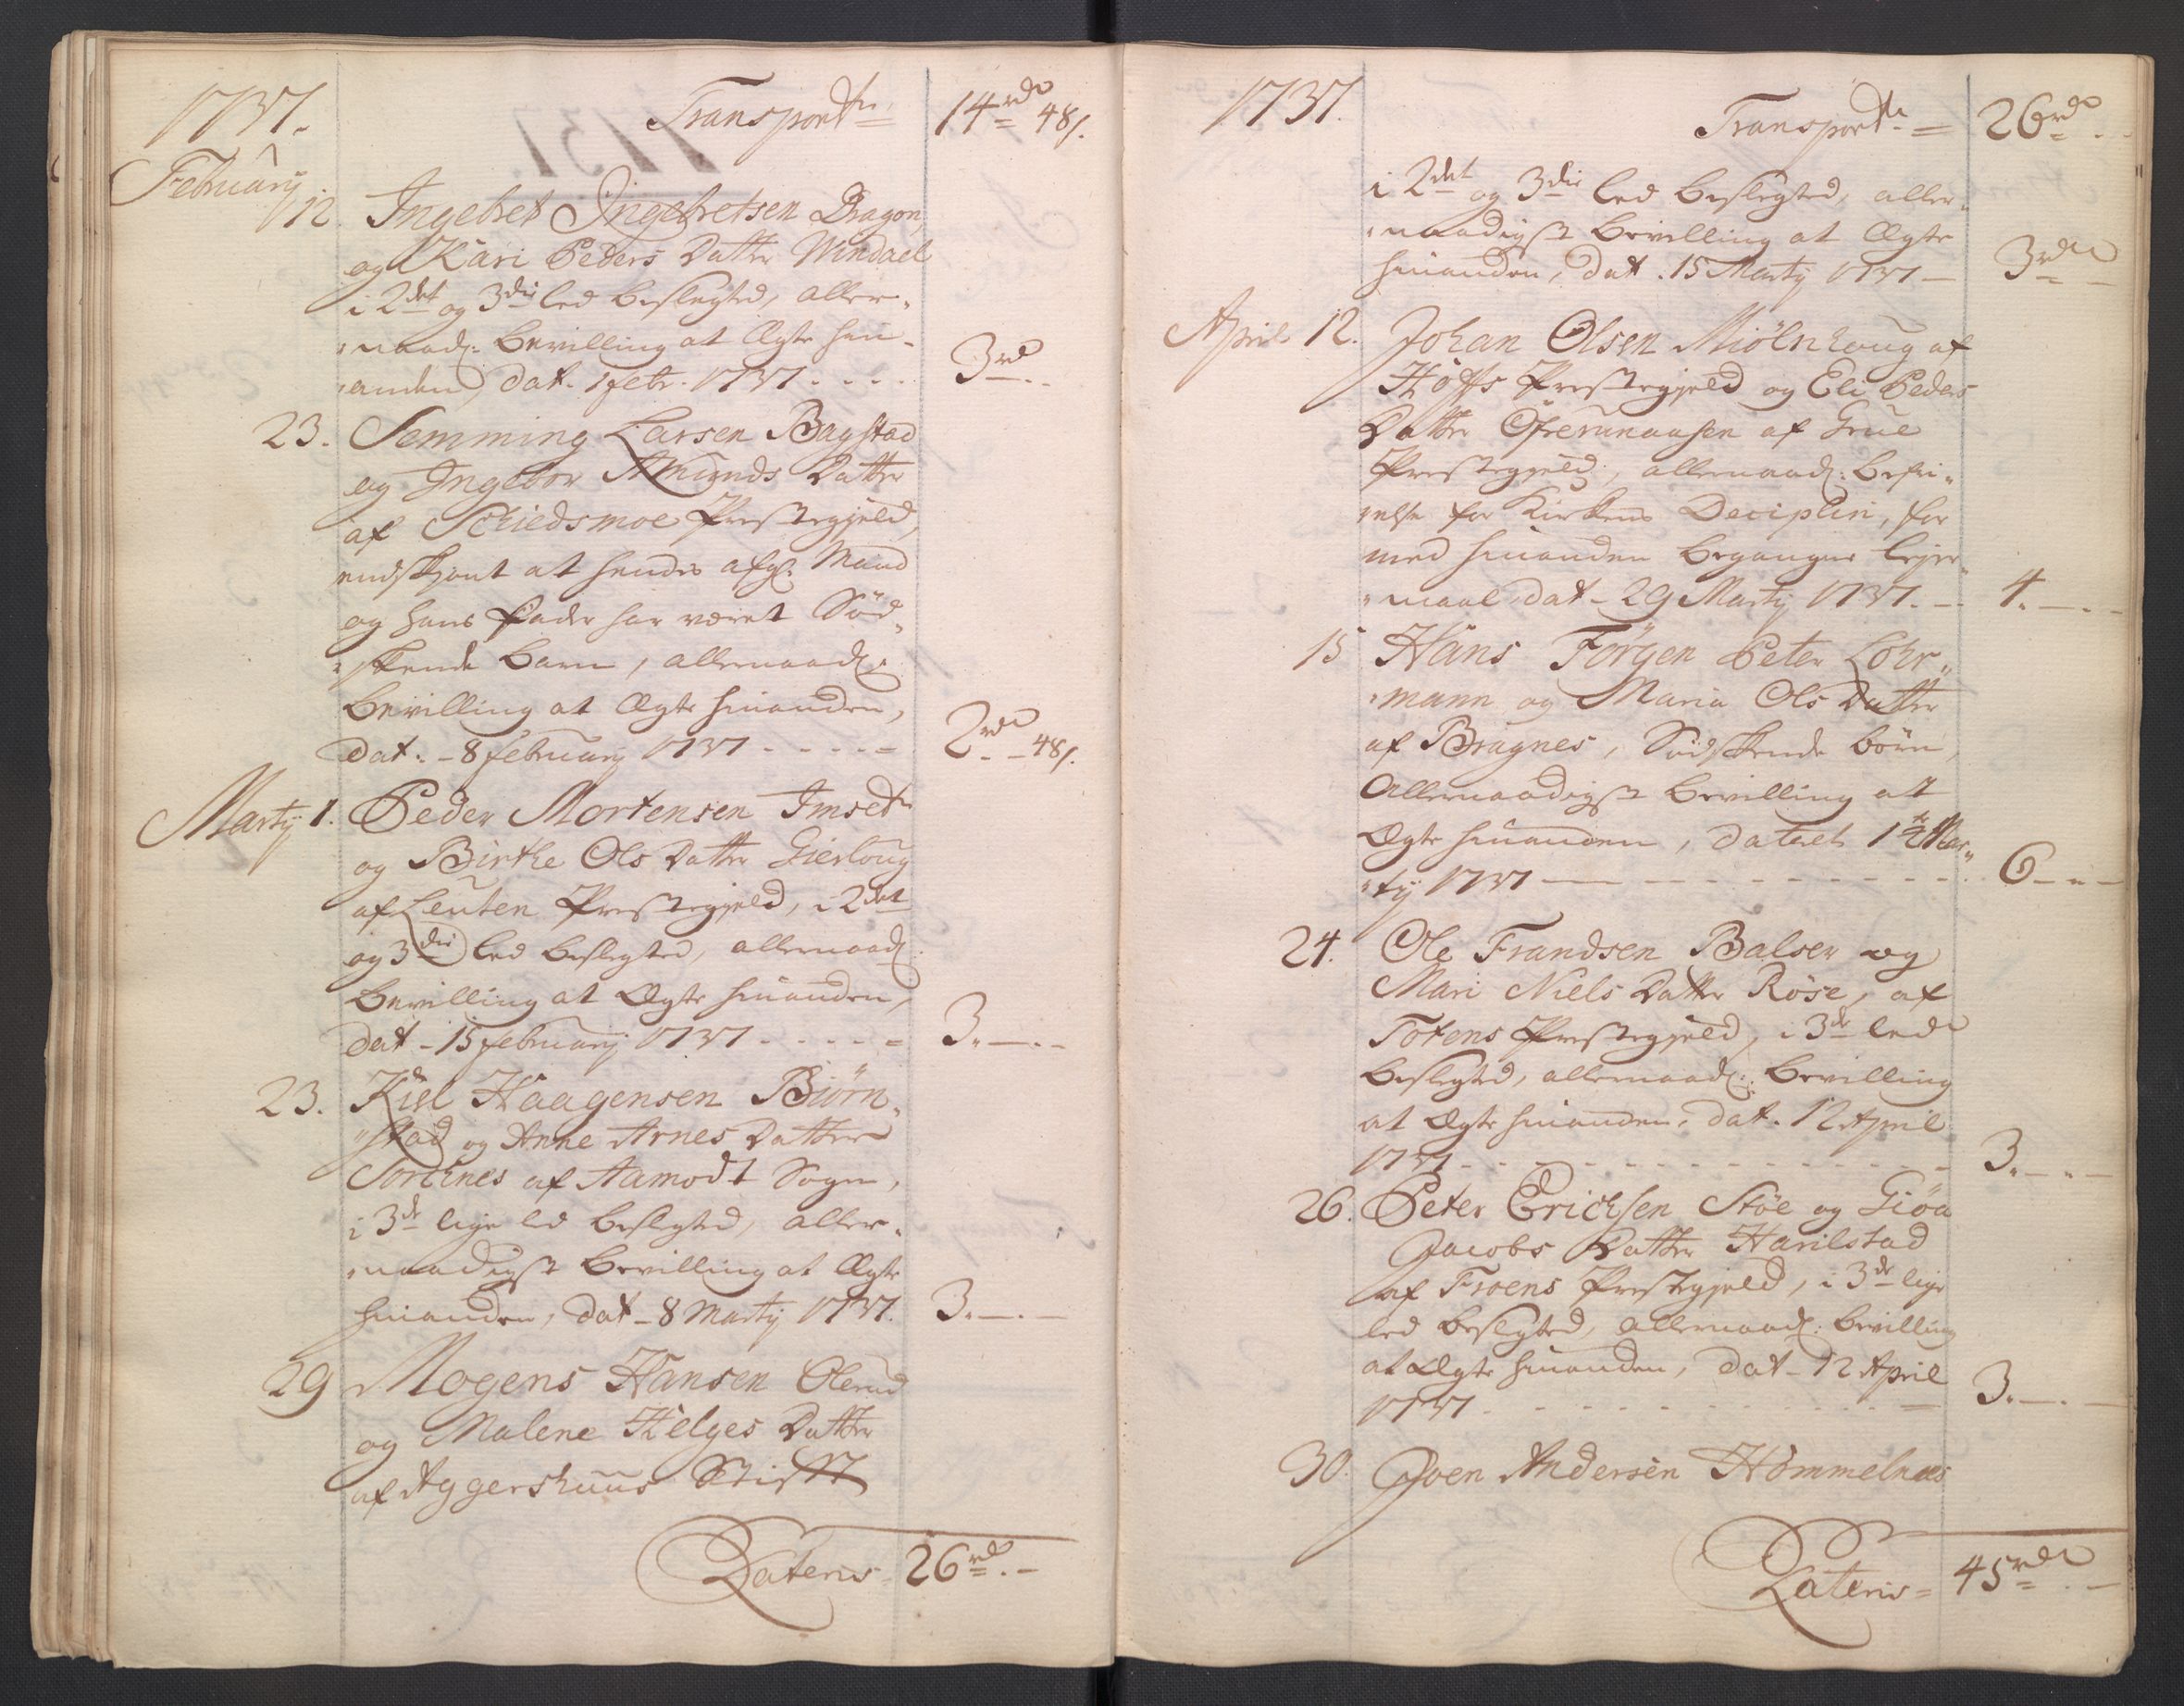 1737.
Transport = 14 rdr 48 s.
February
12. Ingebret Ingebretsen Dragon,
og Kari Peders Datter Windael
i 2det og 3die Led beslegted, aller-
naad: Bevilling at Ægte hin-
anden, dat. 1 febr. 1737 . . . . 3 rd
23. Semming Larsen Bagstad
og Ingebor Amunds Datter
af Schiedsmoe Prestegjeld,
endskjønt at hendes afg: Mand
og hans Fader har været Sød-
skende Børn, allernaad:
Bevilling at Ægte hinanden,
dat. - 8 february 1737 - - - - = 2 rdr 48 s.
Martij 1. Peder Mortensen Imset
og Birthe Ols Datter Gierloug
af Leuten Prestegjeld, i 2det
og 3die Led beslegted, allernaad:
Bevilling at Ægte hinanden,
dat - 15 february 1737 - - - - = 3. — . -
23. Kiel Haagensen Biörn-
stad og Anne Arnes Datter
Sorknes af Aamodt Sogn,
i 3de lige led beslegted, aller-
naadigst Bevilling at Ægte
hinanden, dat - 8 Martij 1737. 3. — . —
29 Mogens Hansen Olerud
og Malene Helges Datter
af Aggershuus Stifft
Lateris = 26 rdr . -
1737.
Transport = 26 rdr . -
i 2det og 3die Led beslegted, aller-
naadigst Bevilling at Ægte
hinanden, dat. 15 Martij 1737 — 3 rdr
April 12. Johan Olsen Miölnhoug af
Hoffs Prestegjeld og Eli Peders
Datter af Grue
Prestegjeld, allernaad: befri-
else for Kirkens Deciplin, for
med hinanden begangne lejer-
maal dat - 29 Martij 1737. - 4. — . -
15 Hans Jörgen Peter Lohr-
mann og Maria Ols Datter
af Bragnes, Södskende börn,
Allernaadigst bevilling at
Ægte hinanden, dateret Mar-
tij 1737 — - - - - - - - 6 - . -
24. Ole Frandsen Balser og
Mari Niels Datter Röse, af
Totens Prestegjeld, i 3de led
beslegted, allernaad: bevilling
at Ægte hinanden, dat. 12 April
1737 - - - - - - - - 3. — . —
26. Peter Erichsen Stöe og Giöa
Jacobs Datter Harilstad
af Froens Prestegjeld, i 3de lige
led beslegted, allernaad: bevilling
at Ægte hinanden, dat - 12 April
1737 - - - - - - - - 3. — . —
30. Joen Andersen Hommelnæs
Lateris = 45 rdr . —